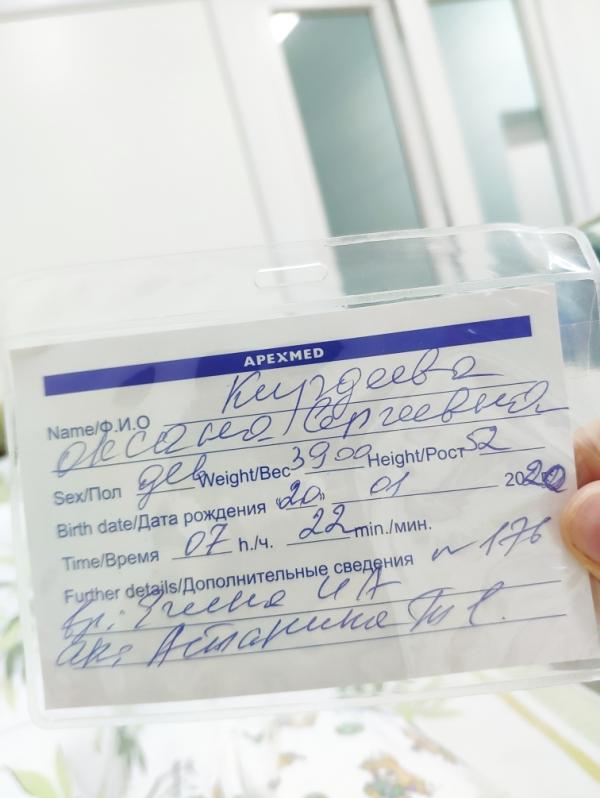 APEXMED
Name/Ф.И.О Кирдеева
Оксана Сергеевна
Sex/Пол дев Weight/Вес 3900 Height/Рост 52
Birth date/Дата рождения "20" 01 2020
Time/Время 07 h./ч. 22 min./мин.
Further details/Дополнительные сведения n 176
вр: И А
ак: Астанина Т С.